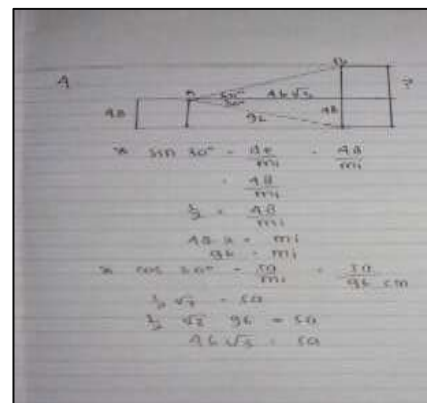 4
?
48
48
96
* sin 30° = de/mi = 48/mi
= 48/mi
1/2 = 48/mi
48 x = mi
96 = mi
* cos 30° = sa/mi = sa/96 cm
1/2 √3 = sa
1/2 √3 96 = sa
48 √3 = sa